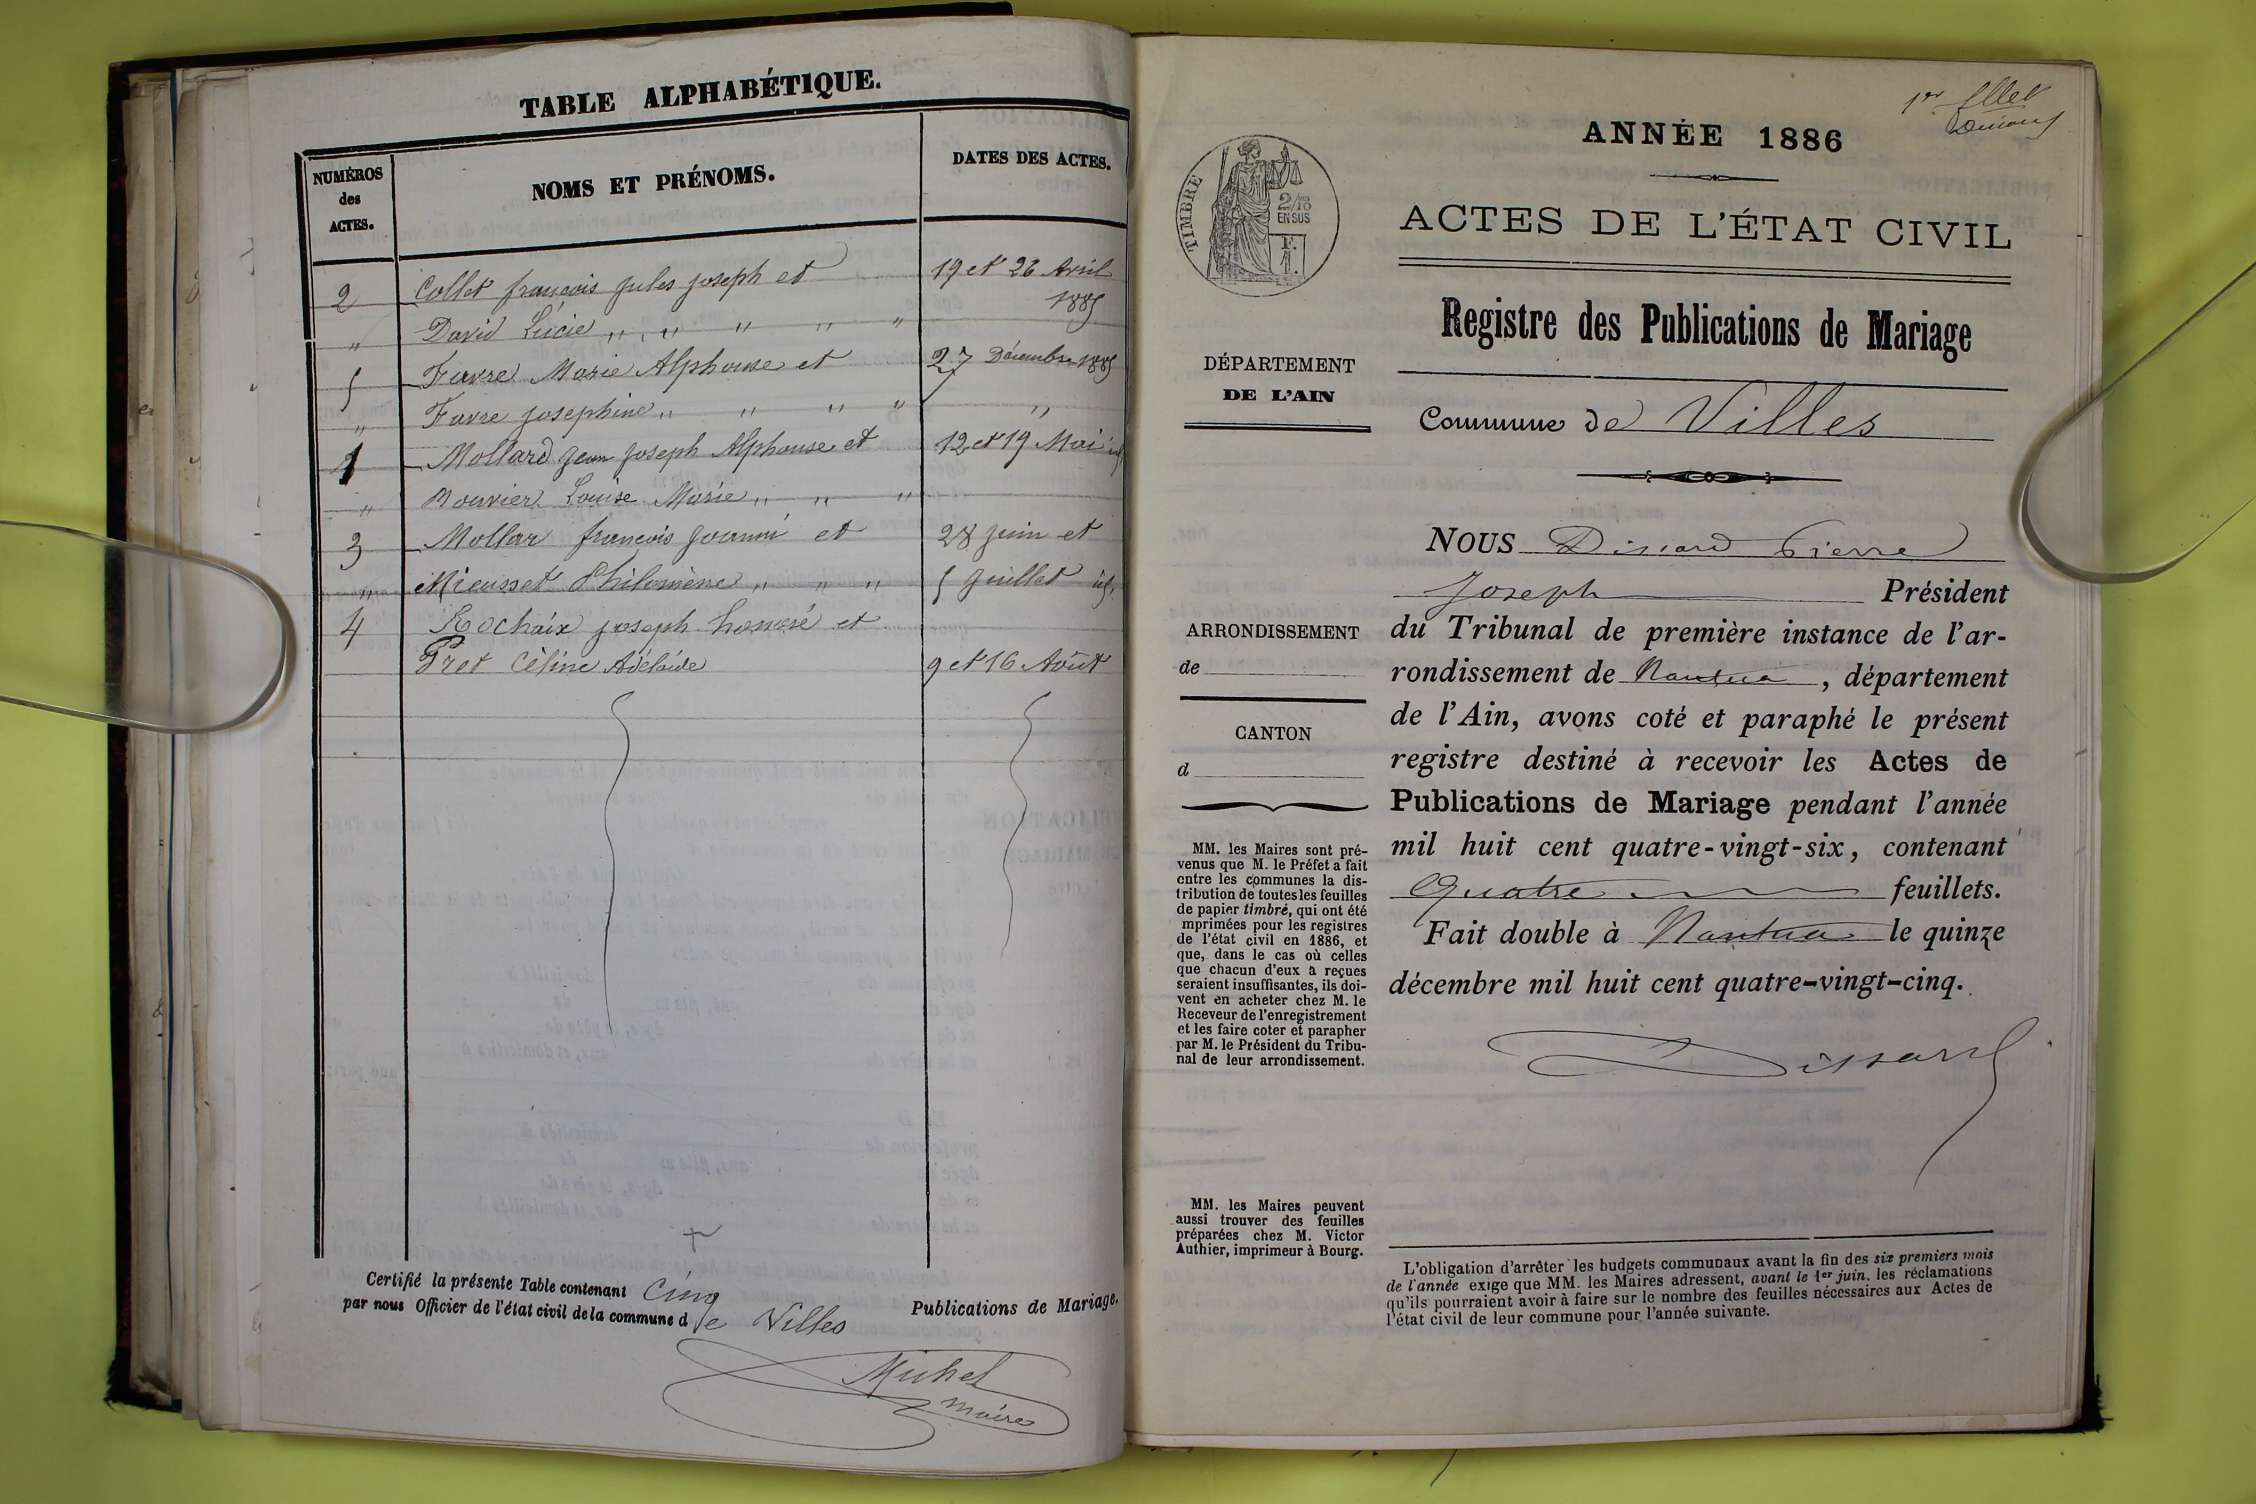 TABLE ALPHABÉTIQUE.
NUMÉROS
des
ACTES.
NOMS ET PRÉNOMS.
DATES DES ACTES.
2 Collet françois Jules Joseph et 19 et 26 Avril
" David Lucie " " " " " 1885
5 Favre Marie Alphonse et 27 Décembre 1885
" Favre Josephine " " " " "
1 Mollard Jean Joseph Alphonse et 12 et 19 Mai
" Bouvier Louise Marie " " "
3 Mollar françois Joanni et 28 Juin et
" Mieusset Philomène " " " 5 Juillet
4 Rochaix Joseph honoré et
Pret Céline Adélaïde 9 et 16 Août
Certifié la présente Table contenant Cinq Publications de Mariage.
par nous Officier de l'état civil de la commune d de Villes
Michel
maire
1er
ANNÉE 1886
ACTES DE L'ÉTAT CIVIL
Registre des Publications de Mariage
Commune de Villes
TIMBRE
2/10
EN SUS
F.
1.
DÉPARTEMENT
DE L'AIN
ARRONDISSEMENT
de
CANTON
d
MM. les Maires sont pré-
venus que M. le Préfet a fait
entre les communes la dis-
tribution de toutes les feuilles
de papier timbré, qui ont été
mprimées pour les registres
de l'état civil en 1886, et
que, dans le cas où celles
que chacun d'eux a reçues
seraient insuffisantes, ils doi-
vent en acheter chez M. le
Receveur de l'enregistrement
et les faire coter et parapher
par M. le Président du Tribu-
nal de leur arrondissement.
MM. les Maires peuvent
aussi trouver des feuilles
préparées chez M. Victor
Authier, imprimeur à Bourg.
NOUS Dissard Pierre
Joseph Président
du Tribunal de première instance de l'ar-
rondissement de Nantua, département
de l'Ain, avons coté et paraphé le présent
registre destiné à recevoir les Actes de
Publications de Mariage pendant l'année
mil huit cent quatre-vingt-six, contenant
Quatre feuillets.
Fait double à Nantua le quinze
décembre mil huit cent quatre-vingt-cinq.
Dissard
L'obligation d'arrêter les budgets communaux avant la fin des six premiers mois
de l'année exige que MM. les Maires adressent, avant le 1er juin, les réclamations
qu'ils pourraient avoir à faire sur le nombre des feuilles nécessaires aux Actes de
l'état civil de leur commune pour l'année suivante.